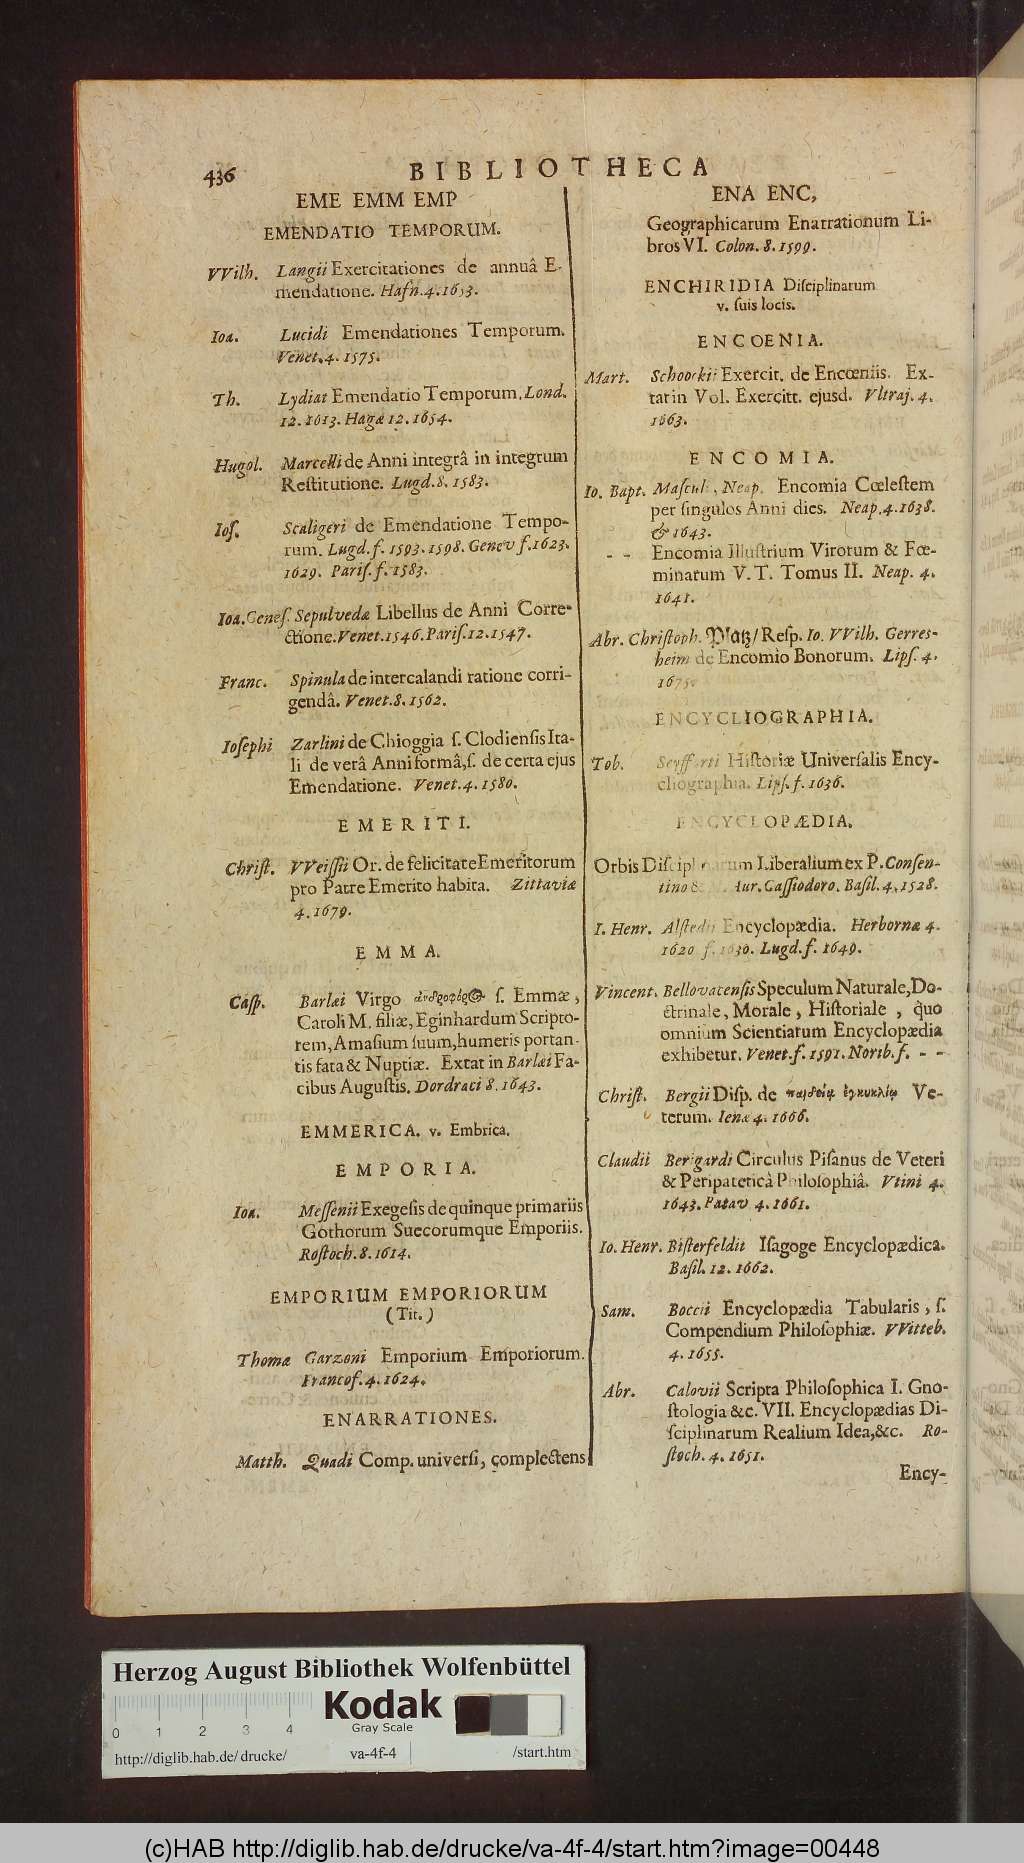 436
BIBLIOTHECA
EME EMM EMP
EMENDATIO TEMPORUM.
VVilh. Langii Exercitationes de annuâ E-
mendatione. Hafn. 4. 1653.
Ioa. Lucidi Emendationes Temporum.
Venet. 4. 1575.
Th. Lydiat Emendatio Temporum. Lond.
12. 1613. Hagæ 12. 1654.
Hugol. Marcelli de Anni integrâ in integrum
Reſtitutione. Lugd. 8. 1583.
Ioſ. Scaligeri de Emendatione Tempo-
rum. Lugd. f. 1593. 1598. Genev f. 1623.
1629. Pariſ. f. 1583.
Ioa. Geneſ. Sepulvedæ Libellus de Anni Corre-
ctione. Venet. 1546. Pariſ. 12. 1547.
Franc. Spinula de intercalandi ratione corri-
gendâ. Venet. 8. 1562.
Ioſephi Zarlini de Chioggia ſ. Clodienſis Ita-
li de verâ Anni formâ, ſ. de certa ejus
Emendatione. Venet. 4. 1580.
EMERITI.
Chriſt. VVeiſſii Or. de felicitate Emeritorum
pro Patre Emerito habita. Zittaviæ
4. 1679.
EMMA.
Caſp. Barlæi Virgo ἀνδροφόρος ſ. Emmæ,
Caroli M. filiæ, Eginhardum Scripto-
rem, Amaſium ſuum, humeris portan-
tis fata & Nuptiæ. Extat in Barlæi Fa-
cibus Auguſtis. Dordraci 8. 1643.
EMMERICA. v. Embrica.
EMPORIA.
Ioa. Meſſenii Exegeſis de quinque primariis
Gothorum Suecorumque Emporiis.
Roſtoch. 8. 1614.
EMPORIUM EMPORIORUM
(Tit.)
Thomæ Garzoni Emporium Emporiorum.
Francof. 4. 1624.
ENARRATIONES.
Matth. Quadi Comp. universi, complectens
ENA ENC,
Geographicarum Enarrationum Li-
bros VI. Colon. 8. 1599.
ENCHIRIDIA Diſciplinarum
v. ſuis locis.
ENCOENIA.
Mart. Schoockii Exercit. de Encœniis. Ex-
tat in Vol. Exercitt. ejusd. Vltraj. 4.
1663.
ENCOMIA.
Io. Bapt. Maſculi, Neap. Encomia Cœleſtem
per ſingulos Anni dies. Neap. 4. 1638.
& 1643.
- - Encomia Illuſtrium Virorum & Fœ-
minarum V. T. Tomus II. Neap. 4.
1641.
Abr. Chriſtoph. Platz/ Reſp. Io. VVilh. Gerres-
heim de Encomio Bonorum. Lipſ. 4.
1675.
ENCYCLIOGRAPHIA.
Tob. Seyfferti Hiſtoriæ Univerſalis Ency-
cliographia. Lipſ. f. 1636.
ENCYCLOPÆDIA.
Orbis Diſciplinarum Liberalium ex P. Conſen-
tino & Aur. Caſſiodoro. Baſil. 4. 1528.
I. Henr. Alſtedii Encyclopædia. Herbornæ 4.
1620 f. 1630. Lugd. f. 1649.
Vincent. Bellovacenſis Speculum Naturale, Do-
ctrinale, Morale, Hiſtoriale, quo
omnium Scientiarum Encyclopædia
exhibetur. Venet. f. 1591. Norib. f. - -
Chriſt. Bergii Diſp. de παιδείᾳ ἐγκυκλίῳ Ve-
terum. Ienæ 4. 1666.
Claudii Berigardi Circulus Piſanus de Veteri
& Peripateticâ Philoſophiâ. Vtini 4.
1643. Patav 4. 1661.
Io. Henr. Biſterfeldii Iſagoge Encyclopædica.
Baſil. 12. 1662.
Sam. Boccii Encyclopædia Tabularis, ſ.
Compendium Philoſophiæ. VVitteb.
4. 1655.
Abr. Calovii Scripta Philoſophica I. Gno-
ſtologia &c. VII. Encyclopædias Di-
ſciplinarum Realium Idea, &c. Ro-
ſtoch. 4. 1651.
Ency-
Herzog August Bibliothek Wolfenbüttel
Kodak
Gray Scale
0 1 2 3 4
http://diglib.hab.de/drucke/ va-4f-4 /start.htm
(c)HAB http://diglib.hab.de/drucke/va-4f-4/start.htm?image=00448